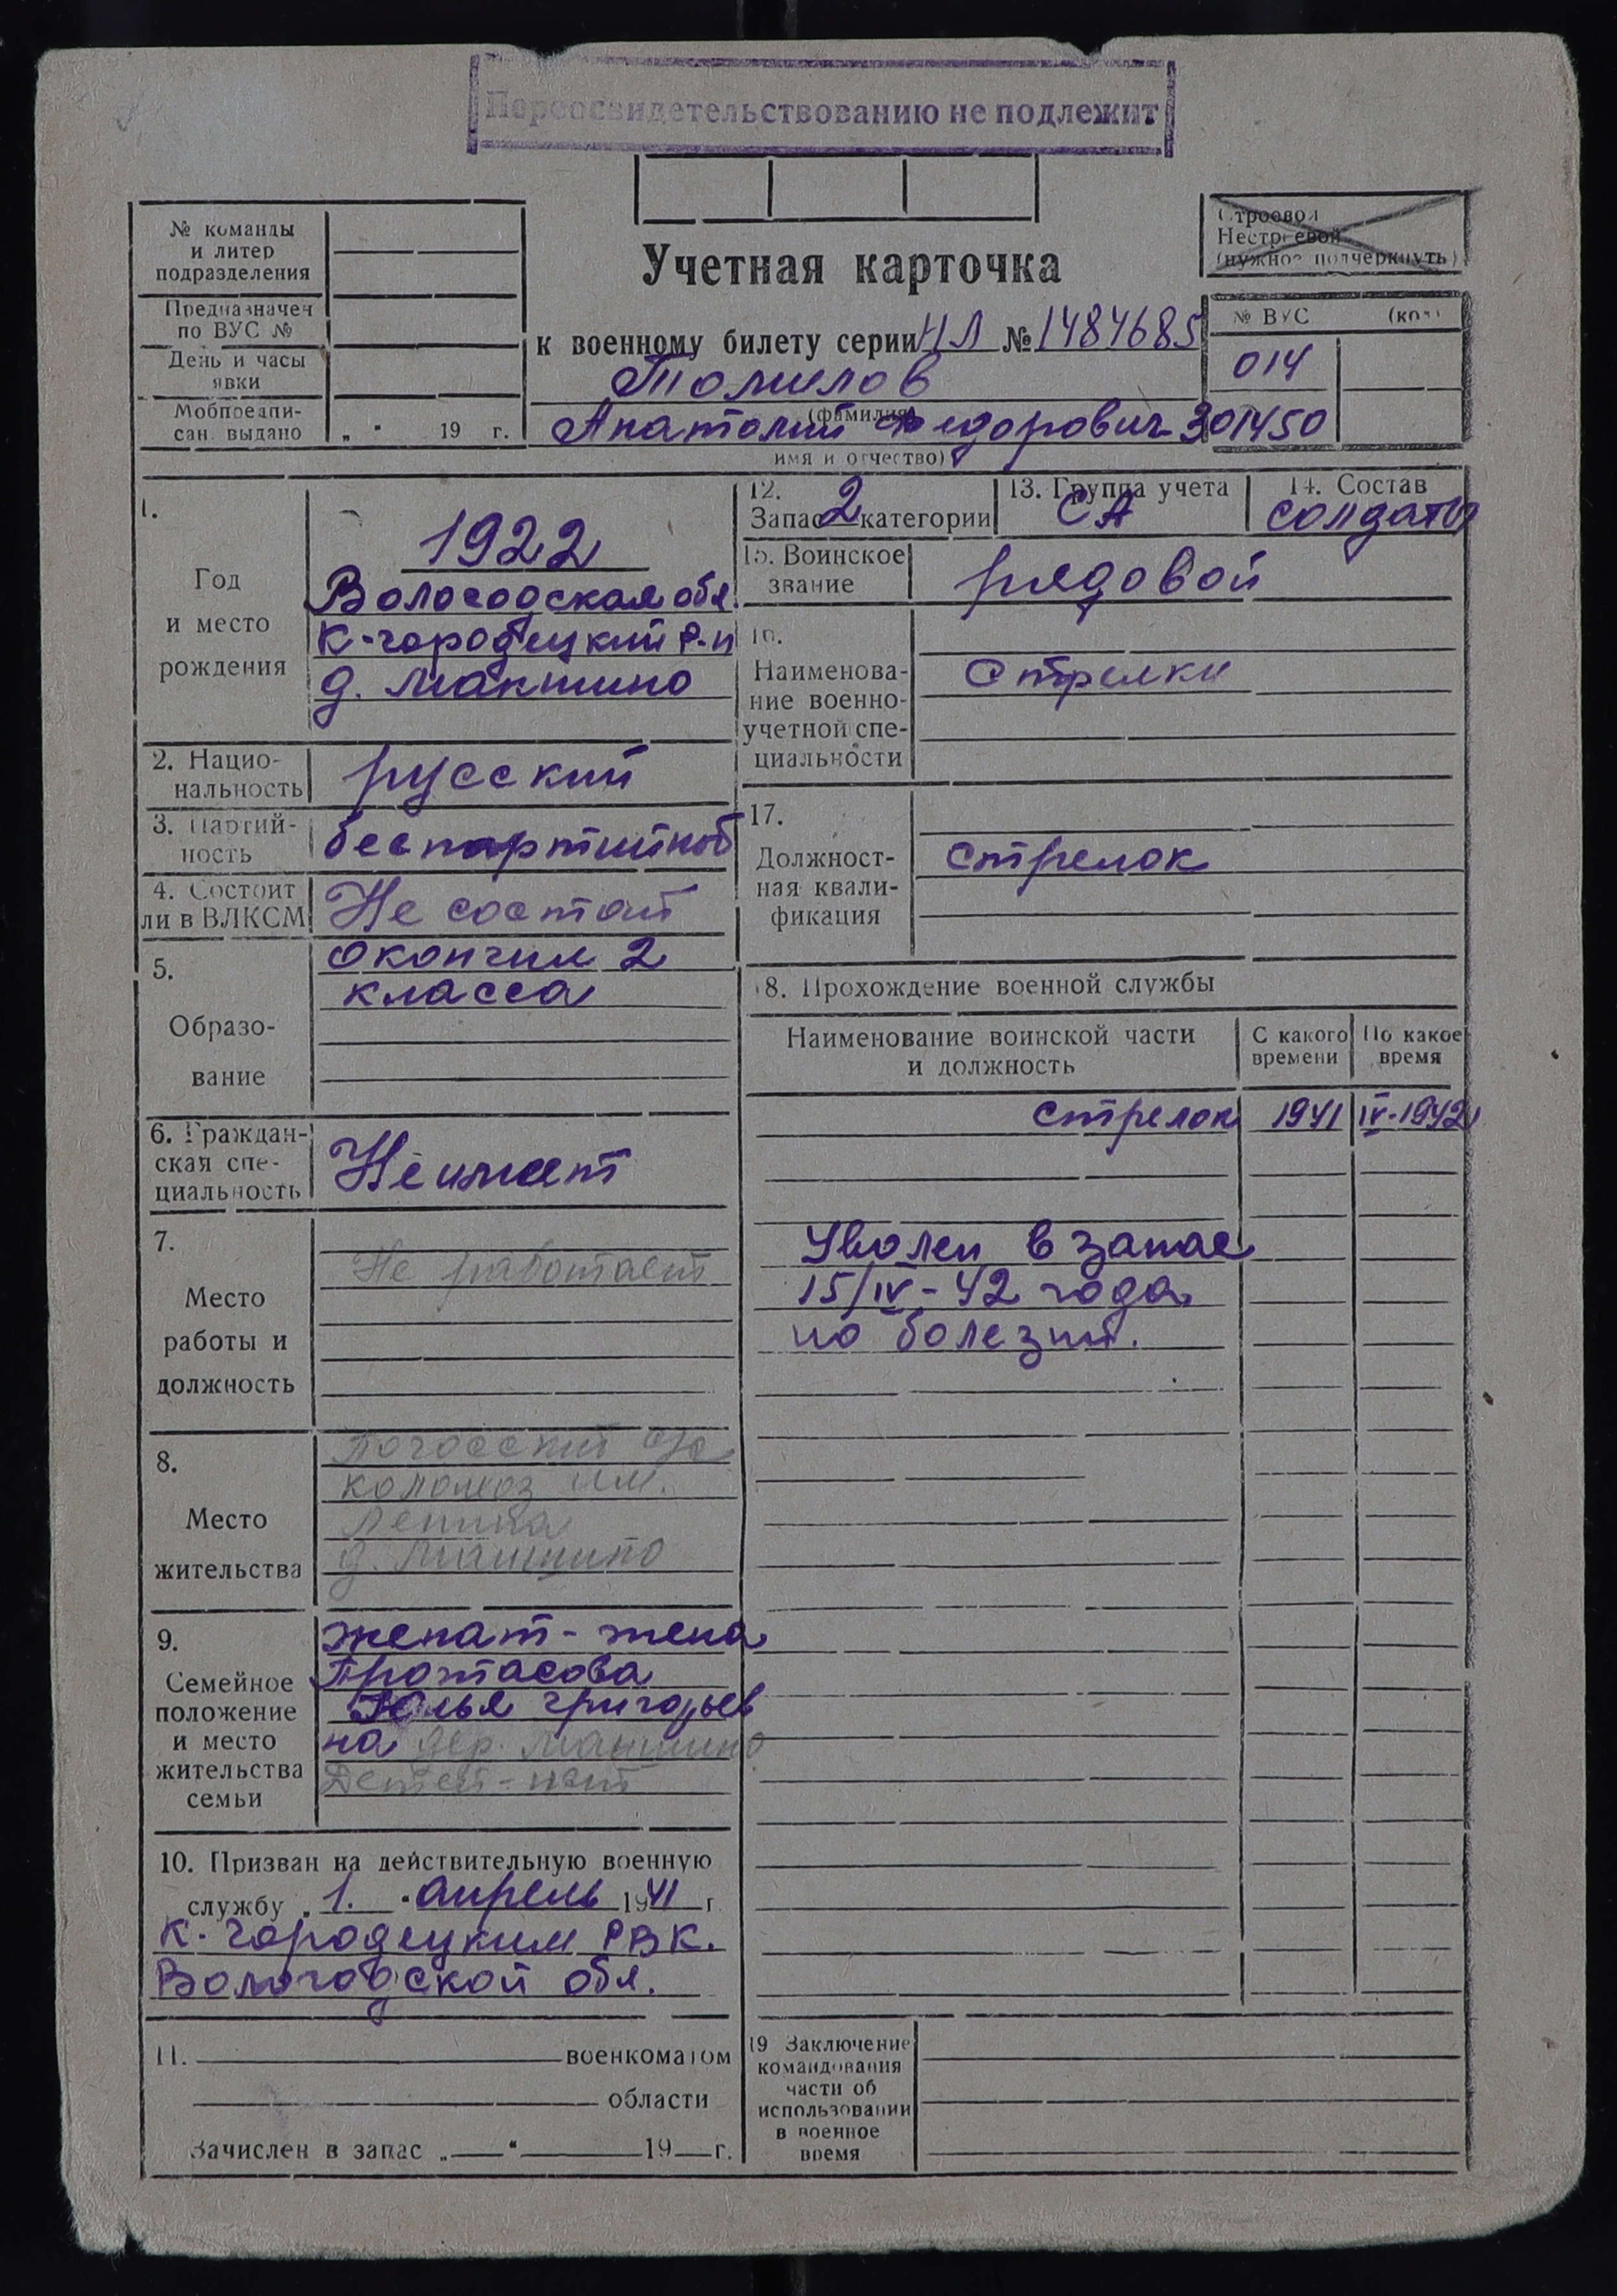 Переосвидетельствованию не подлежит
№ команды
и литер
подразделения
Предназначен
по ВУС №
День и часы
явки
Мобпредпи-
сан. выдано „ " 19 г.
Учетная карточка
к военному билету серии НЛ № 1484685
Томилов
(фамилия)
Анатолий Федорович 301450
имя и отчество)
Строевой
Нестроевой
(нужное подчеркнуть)
№ ВУС (код)
014
1.
Год
и место
рождения
1922
Вологодская обл.
К-городецкий р-н
д. Макшино
2. Нацио-
нальность
русский
3. Партий-
ность
беспартийной
4. Состоит
ли в ВЛКСМ
Не состоит
5.
Образо-
вание
окончил 2
класса
6. Граждан-
ская спе-
циальность
Не имеет
7.
Место
работы и
должность
Не работает
8.
Место
жительства
колхоз им.
Ленина
д.
9.
Семейное
положение
и место
жительства
семьи
женат - жена
Протасова
Юлья Григорьев
на дер.
Детей - нет
10. Призван на действительную военную
службу „ 1. " апрель 1941 г.
К. городецким РВК.
Вологодской обл.
11. военкоматом
области
Зачислен в запас „ " 19 г.
12.
Запас 2 категории
13. Группа учета
СА
14. Состав
солдаты
15. Воинское
звание
рядовой
16.
Наименова-
ние военно-
учетной спе-
циальности
Стрелки
17.
Должност-
ная квали-
фикация
стрелок
18. Прохождение военной службы
Наименование воинской части
и должность
С какого
времени
По какое
время
стрелок 1941 IV-1942
Уволен в запас
15/IV-42 года
по болезни.
19 Заключение
командования
части об
использовании
в военное
время